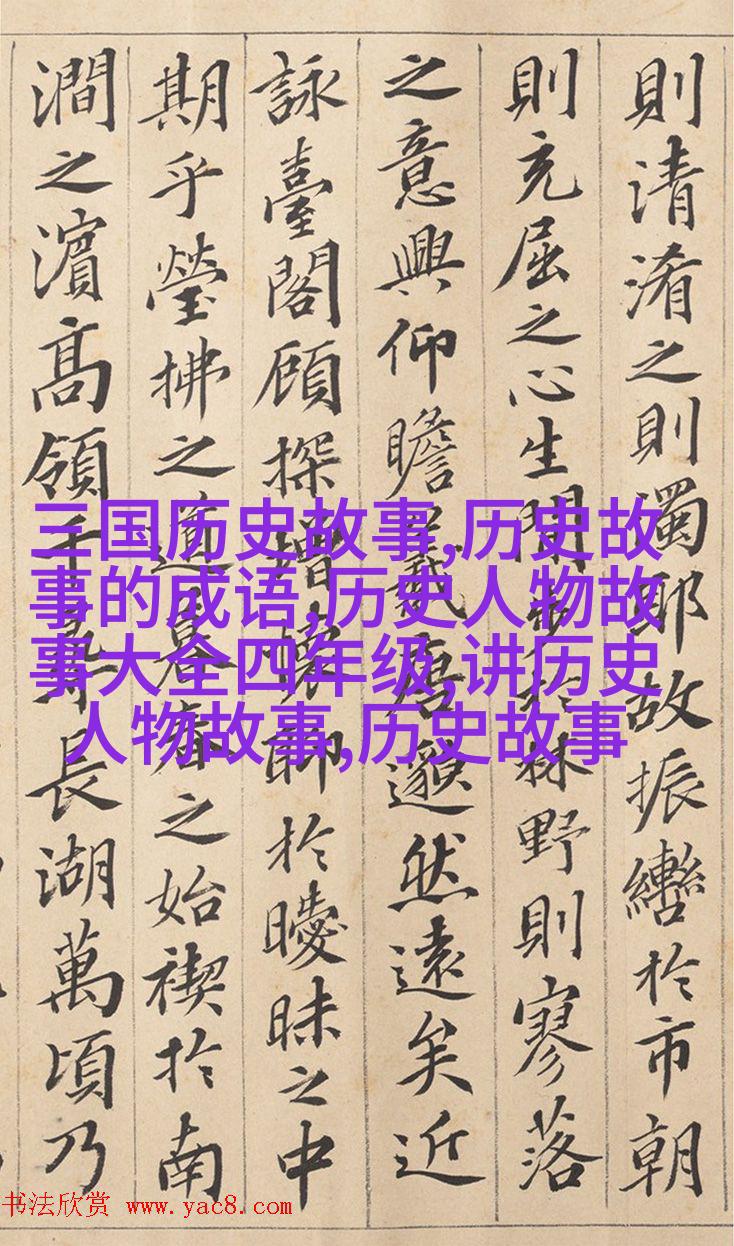 則清淆之則濁耶故振轡於市朝
則充屈之心生閒步於林野則寥落
之意興仰瞻羲唐邈然遠矣近
詠臺閣顧探增懷聊於曖昧之中
期乎瑩拂之道暮春之始禊於南
澗之濱高領千尋長湖萬頃乃
三国历史故事,历史故
事的成语,历史人物故
事大全四年级,讲历史
人物故事,历史故事
书法欣赏 www.yac8.com